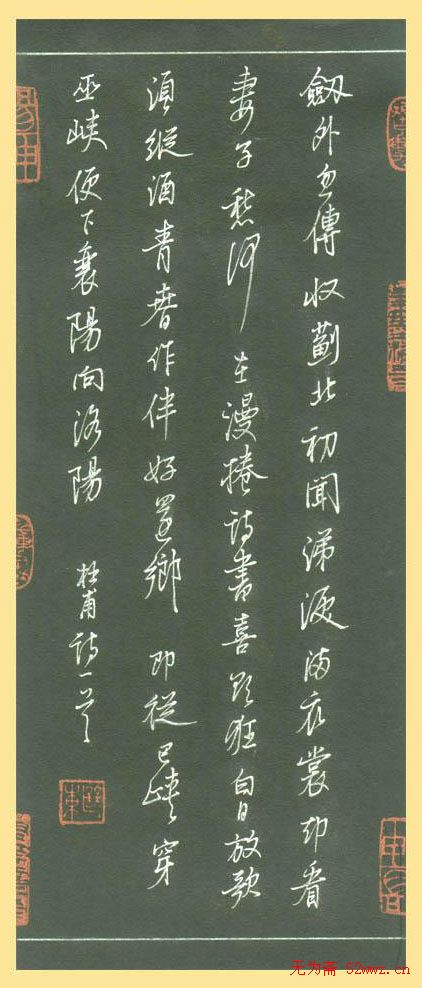 劔外忽傳收薊北初聞涕淚滿衣裳却看
妻子愁何在漫捲詩書喜欲狂白日放歌
須縱酒青春作伴好還鄉即從巴峽穿
巫峽便下襄陽向洛陽 杜甫詩一首
无为斋 52wwz.cn